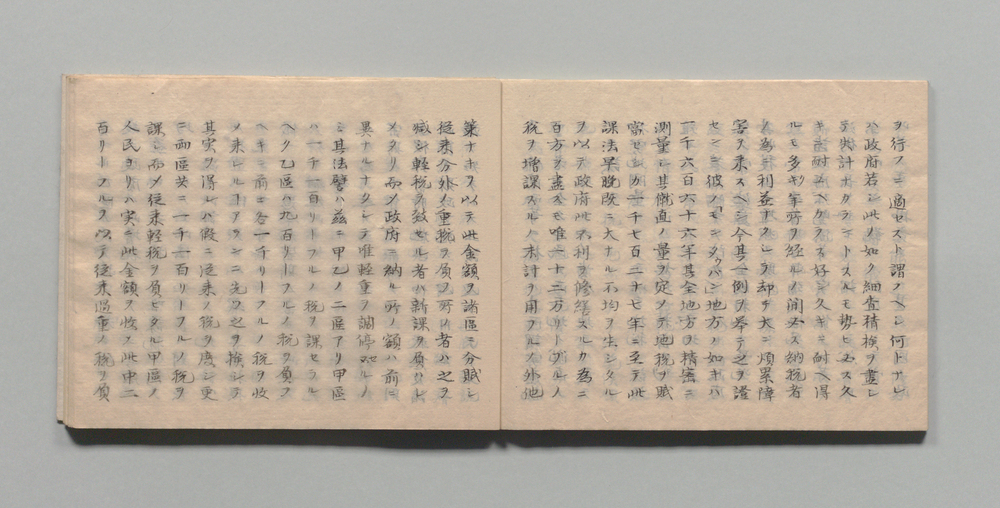 ヲ行フニ適セスト謂ノヘシ何トナレ
ハ政府若シ此ノ如ク細査精検ヲ盡シ
テ失計ナカラントスルモ勢ヒ永久
キニ耐ユヘクラス好シ久キニ耐ヘ得
ルモ多ク年所ヲ経ルノ間 納税者
ノ為ニ利益ナクシテ却テ大ニ煩累障
害ヲ来スヘシ今其一例ヲ挙テ之ヲ證
センニ彼ノ「モンタウバン」地方ノ如キハ
一千六百六十六年其全地方ヲ精密ニ
測量シ其価直ノ量ヲ定メテ地税ヲ賦
當セシカ一千七百二十七年ニ至テ此
課法早晩既ニ大ナル不均ヲ生シタル
ヲ以テ政府此不利ヲ修繕スルカ為ニ
百方ヲ盡スモ唯二十二万リーブルノ
税ヲ増課スルノ末計ヲ用フルノ外他
策ナキヲ以テ此金額ヲ諸區ニ分賦シ
従来分外ノ重税ヲ負フ所ノ者ハ之ヲ
減シ軽税ヲ致セル者ハ新課ヲ負ハシ
メタリ而メ政府ニ納ル所ノ額ハ前ニ
異ナルナクシテ唯軽重ヲ調停セルノ
ミ其法譬ハ茲ニ甲乙ノ二區アリ甲區
ハ一千一百リーフルノ税ヲ課セラル
ヘク乙區ハ九百リーフルノ税ヲ負フ
ヘキニ前ニ各一千リーフルノ税ヲ収
メ来レルーアランニ先ツ之ヲ検シテ
其実ヲ得レハ假ニ従来ノ税ヲ廃シ更
ニ両區共ニ一千一百リーフルノ税ヲ
課シ而メ従来軽税ヲ負ヒタル甲區ノ
人民ヨリハ実ニ此金額ヲ収メ此中二
百リーフルヲ以テ従来過重ノ税ヲ負